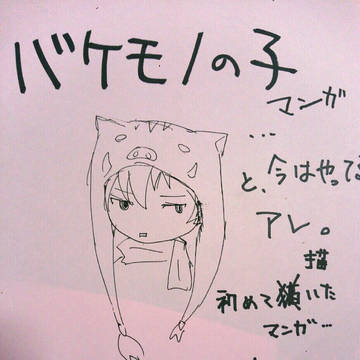 バケモノの子
マンガ
...
と、今はやってる
アレ。
描
初めて猫いた
マンガ...